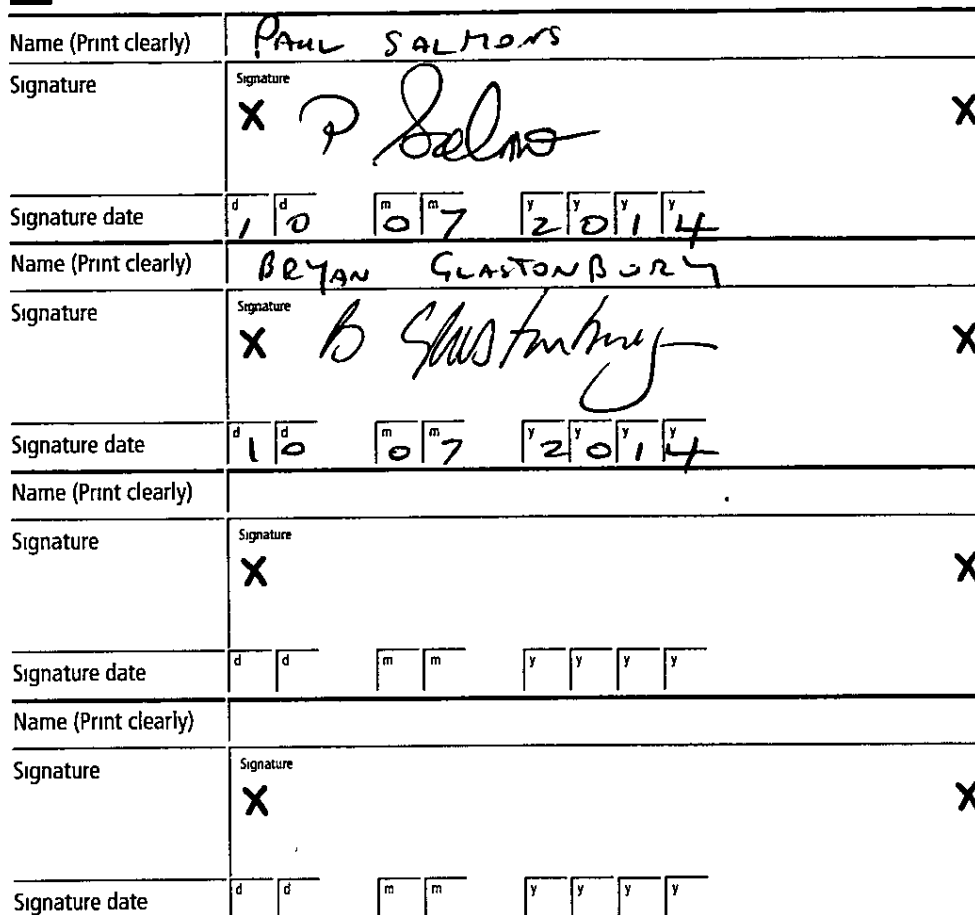 Name (Print clearly) PAUL SALMONS
Signature Signature
X P Salmo X
Signature date d 1 d 0 m 0 m 7 y 2 y 0 y 1 y 4
Name (Print clearly) BRYAN GLASTONBURY
Signature Signature
X B Glastonbury X
Signature date d 1 d 0 m 0 m 7 y 2 y 0 y 1 y 4
Name (Print clearly)
Signature Signature
X X
Signature date d d m m y y y y
Name (Print clearly)
Signature Signature
X X
Signature date d d m m y y y y